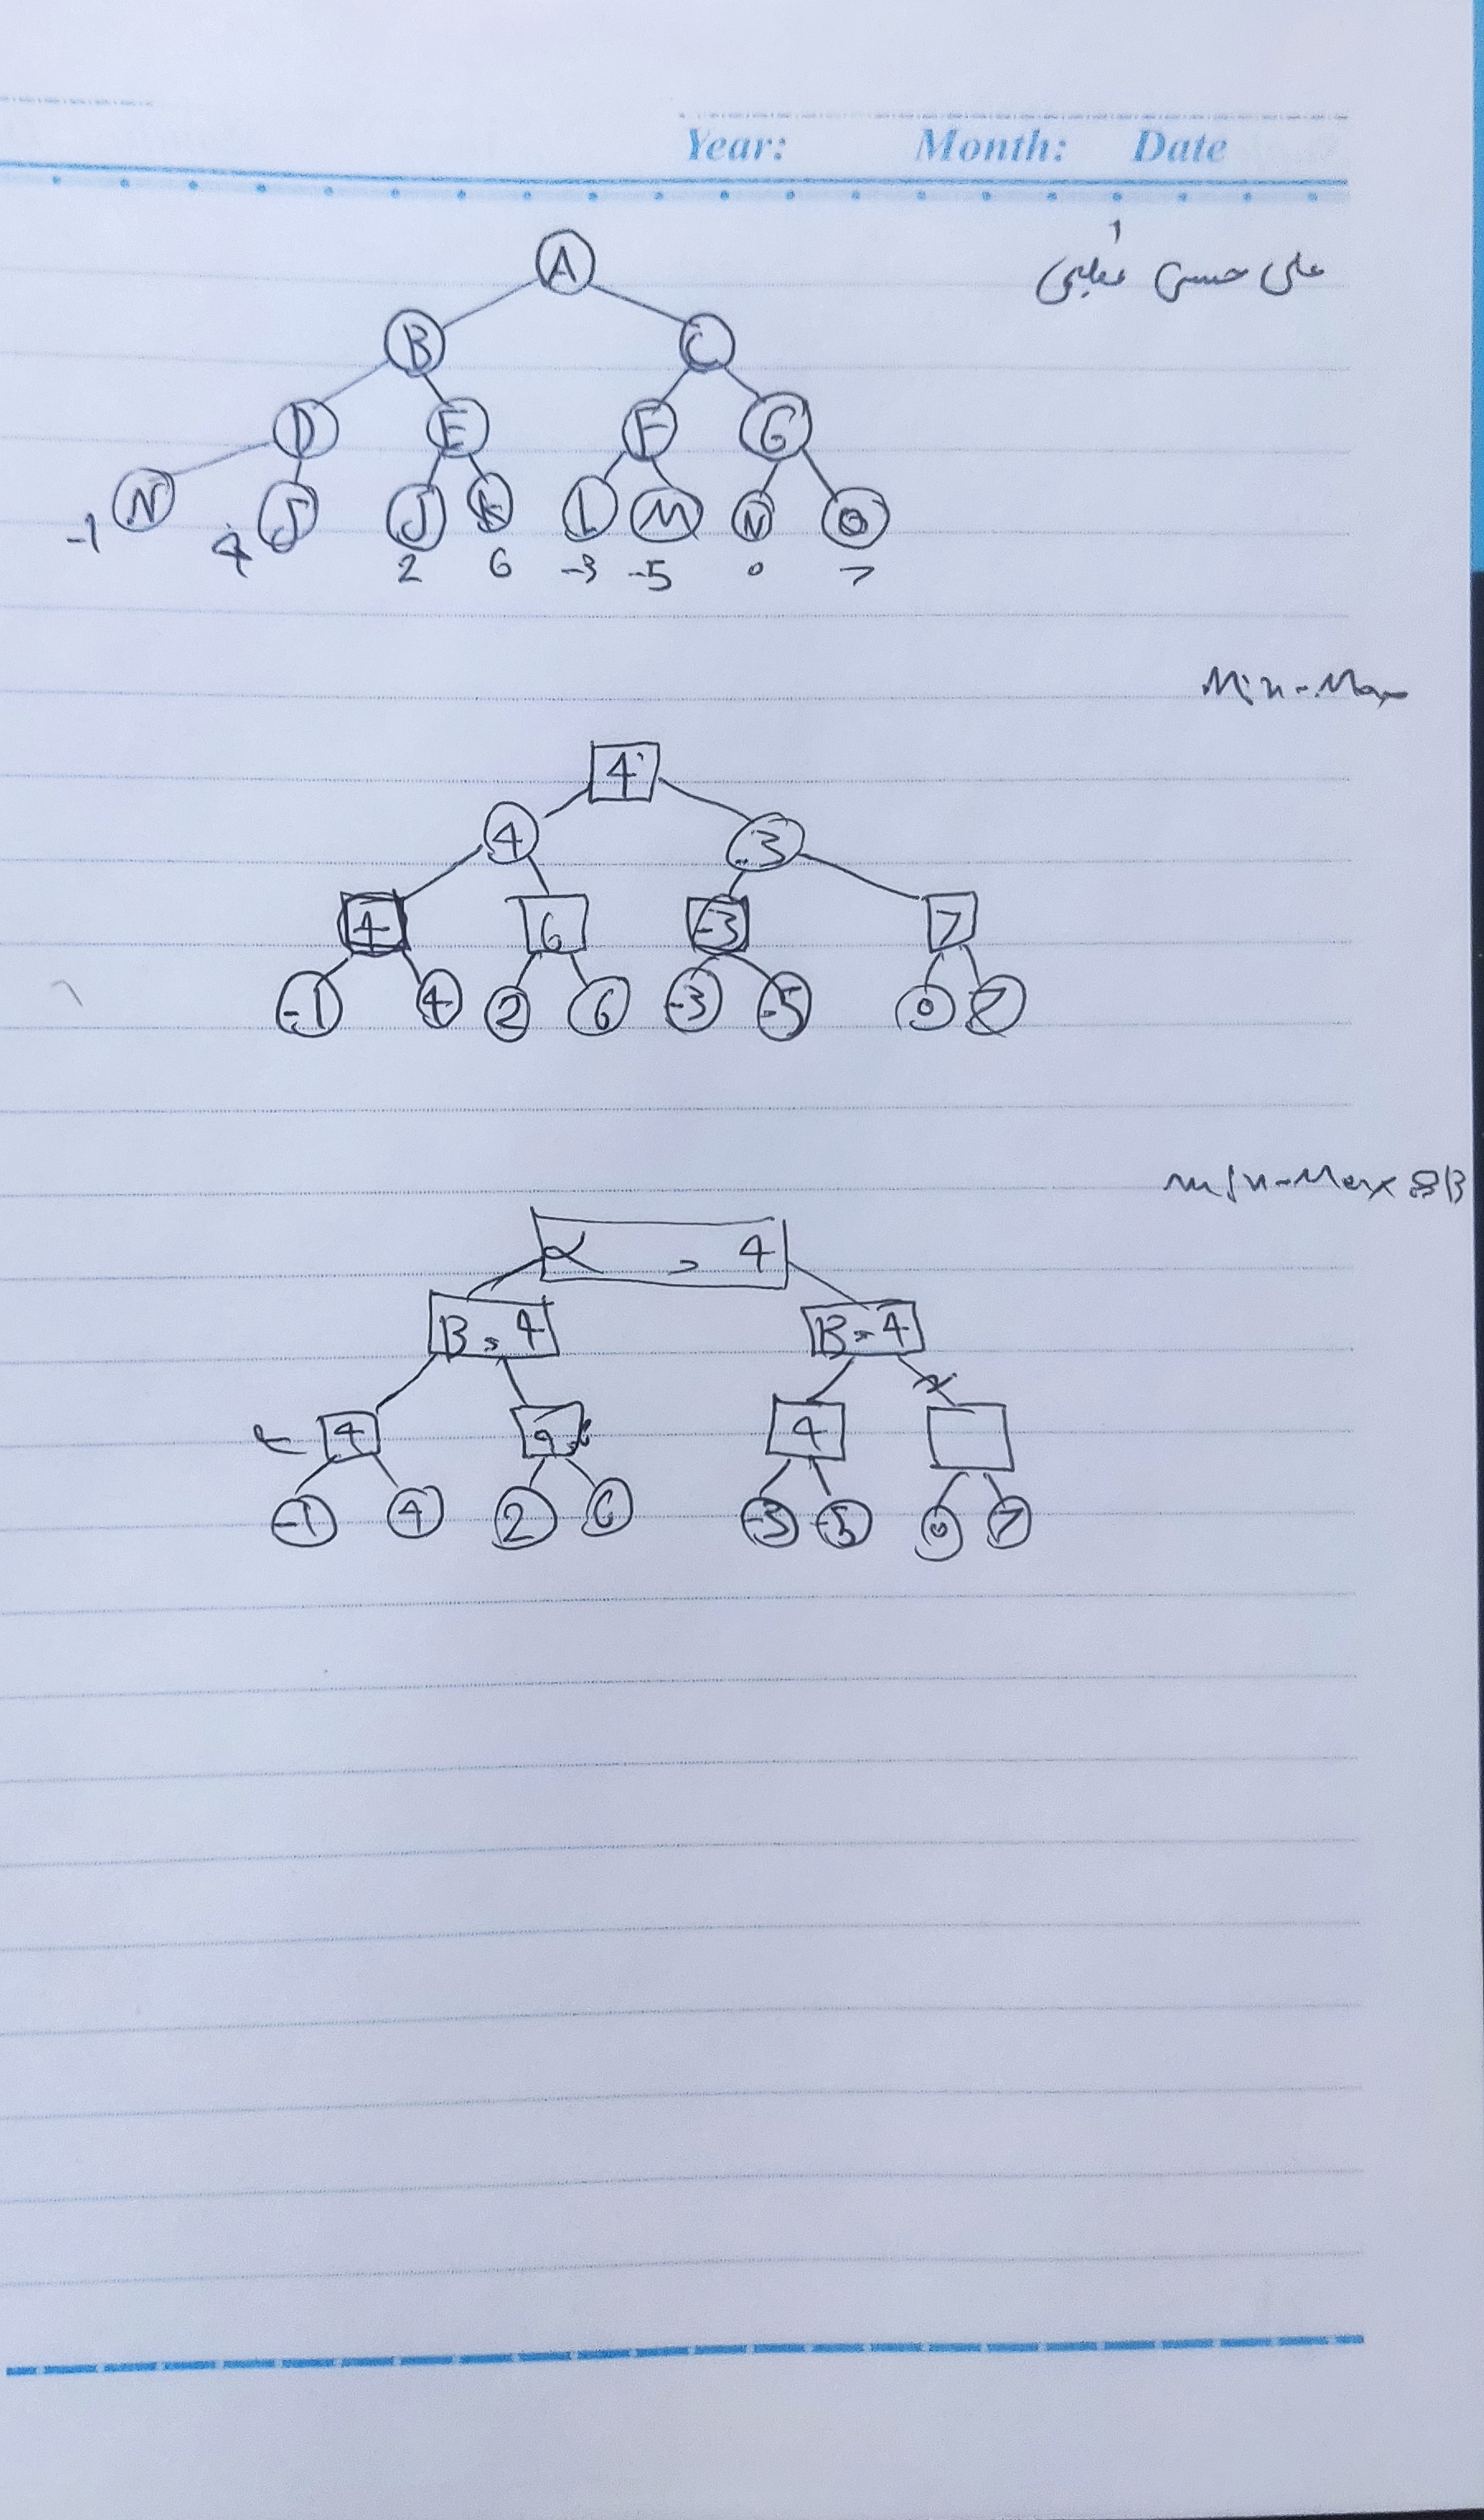 Year: Month: Date
علی حسن
A
B C
D E F G
N J J K L M N O
-1 4 2 6 -3 -5 0 7
Min-Max
4
4 -3
4 6 -3 7
-1 4 2 6 -3 -5 0 7
Min-Max αB
α = 4
B = 4 B = 4
4 4
-1 4 2 6 -3 -5 0 7